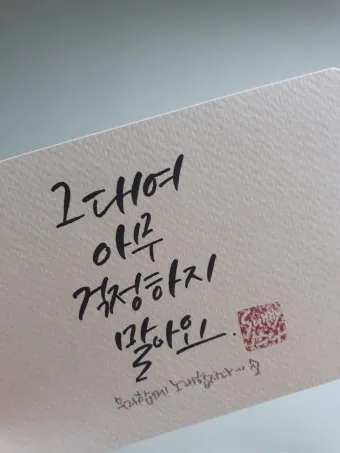 그대여
아무
걱정하지
말아요.
우리 함께 노래합시다 ~ 중